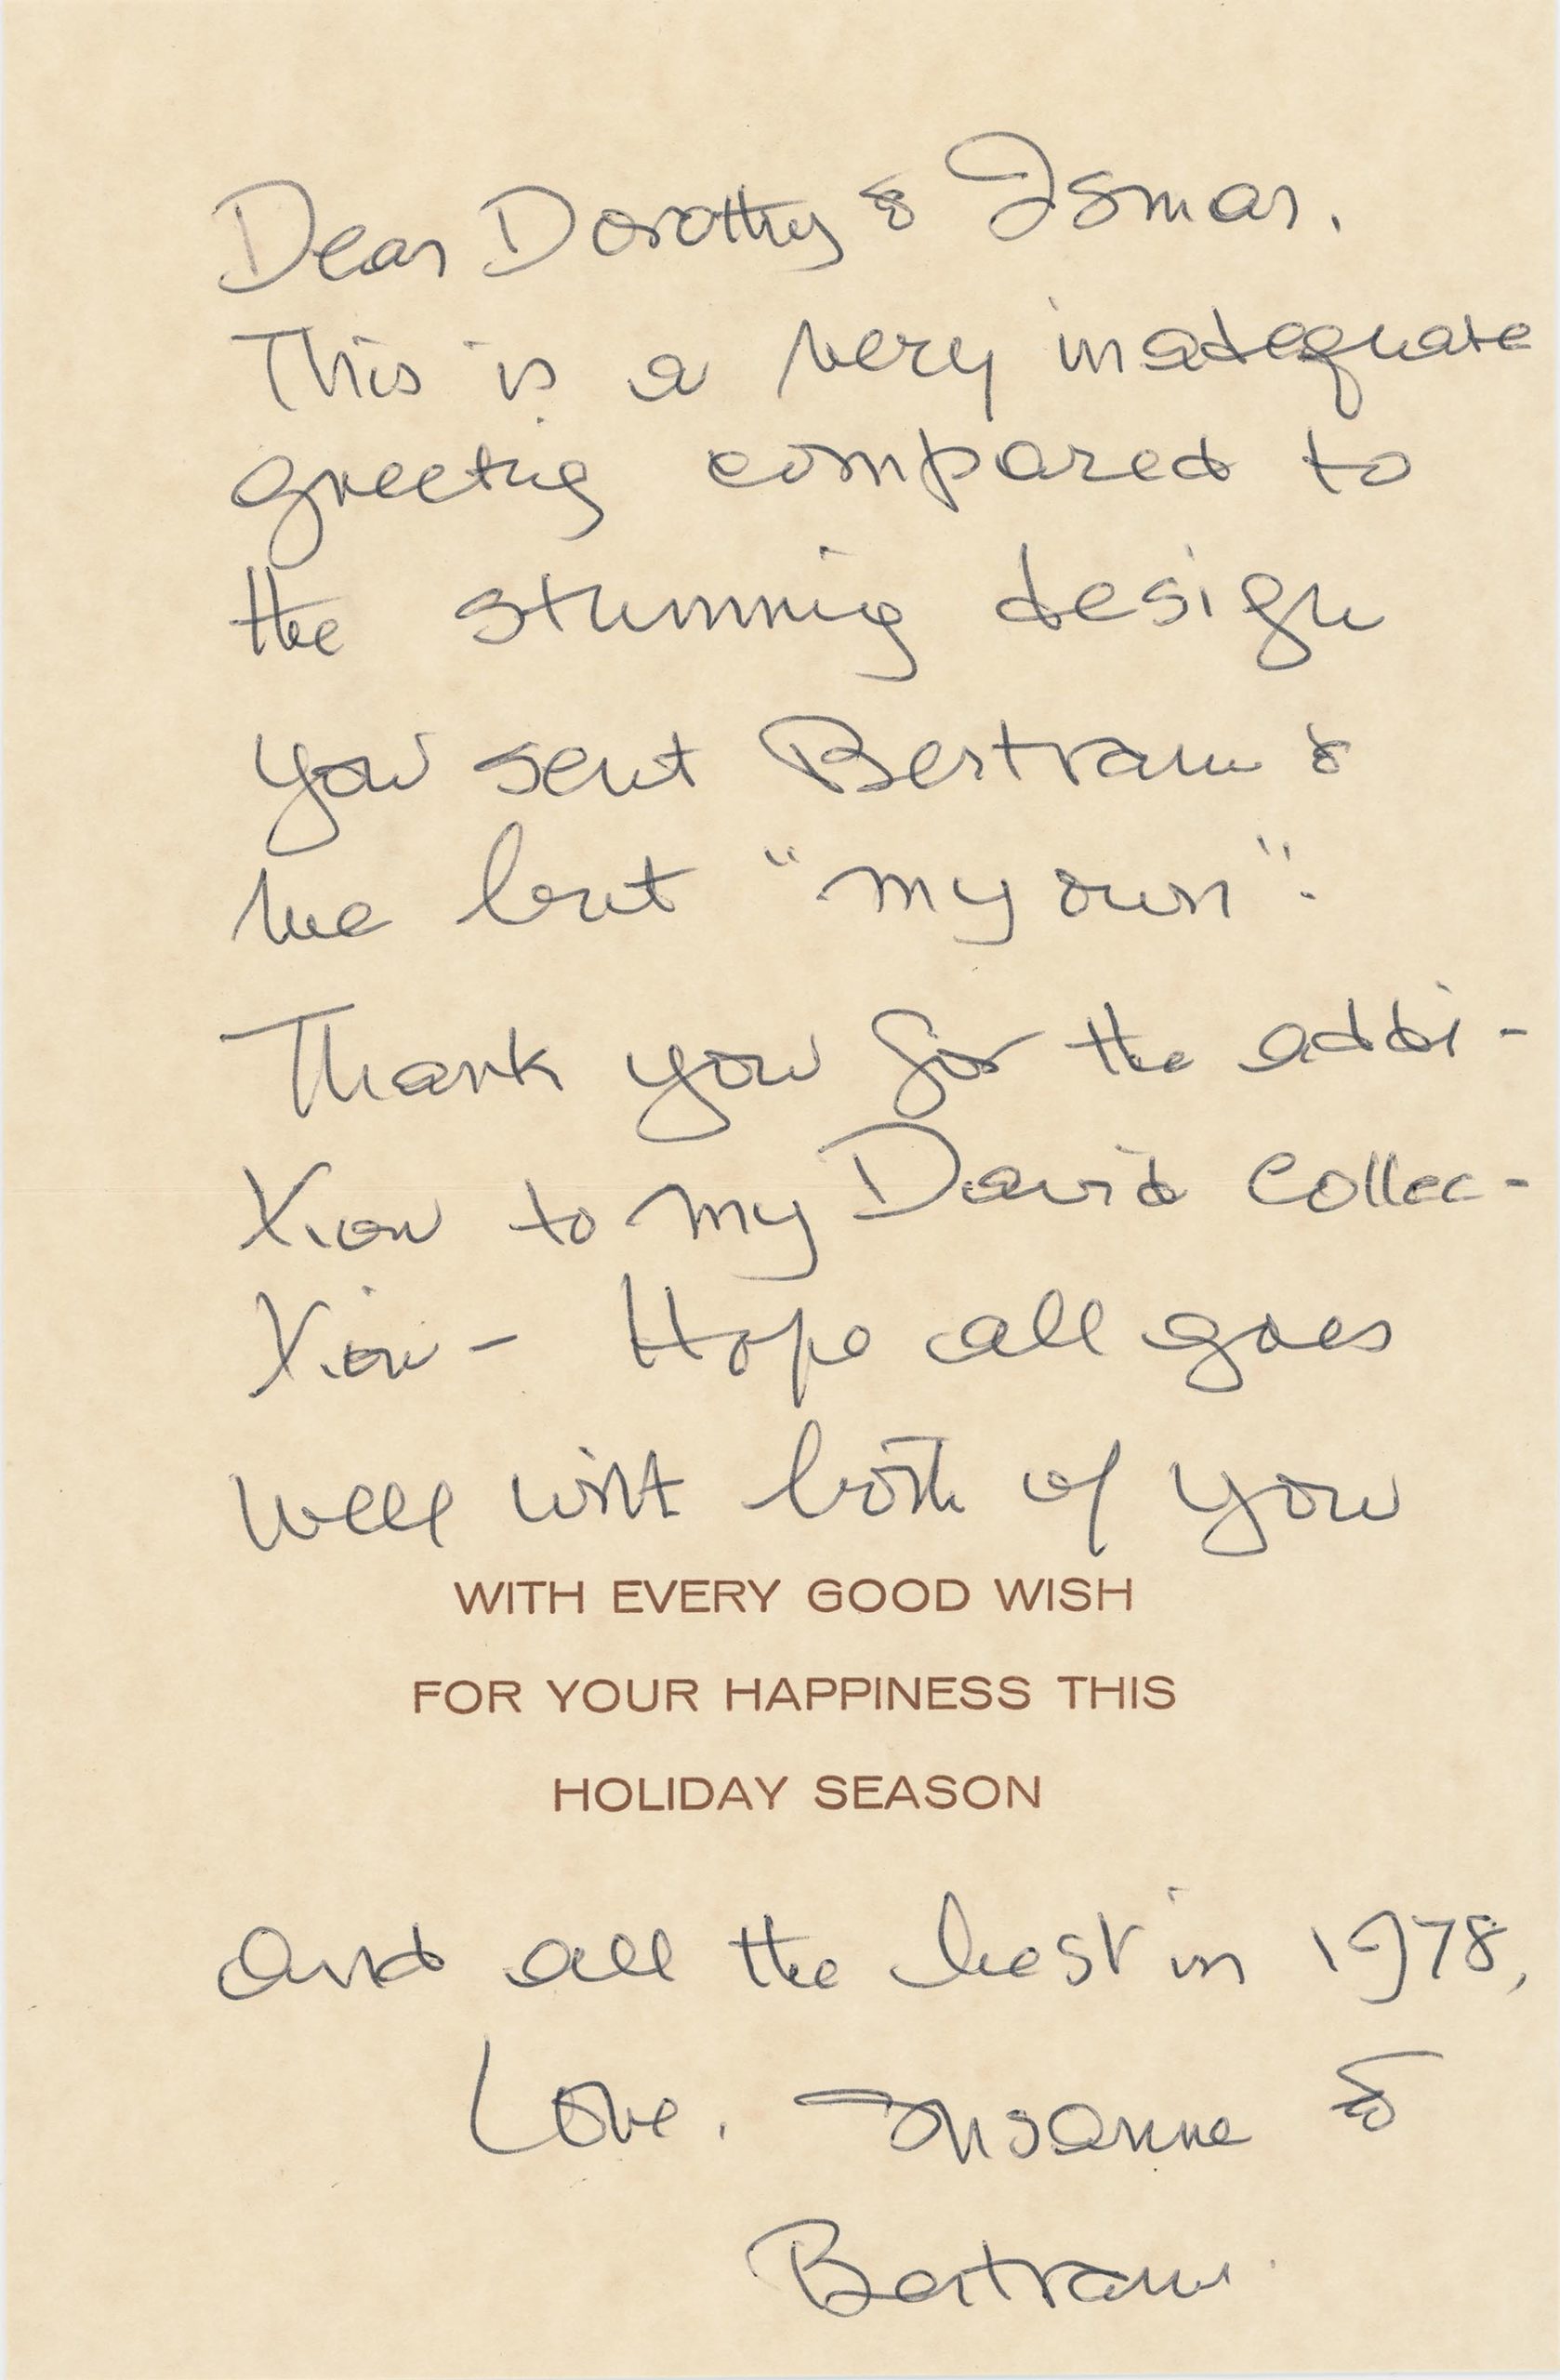 Dear Dorothy & Ismar.
This is a very inadequate
greeting compared to
the stunning design
you sent Bertram &
me but "my own".
Thank you for the addi-
tion to my David Collec-
tion - Hope all goes
well with both of you
WITH EVERY GOOD WISH
FOR YOUR HAPPINESS THIS
HOLIDAY SEASON
and all the best in 1978,
Love, Susanne &
Bertram.